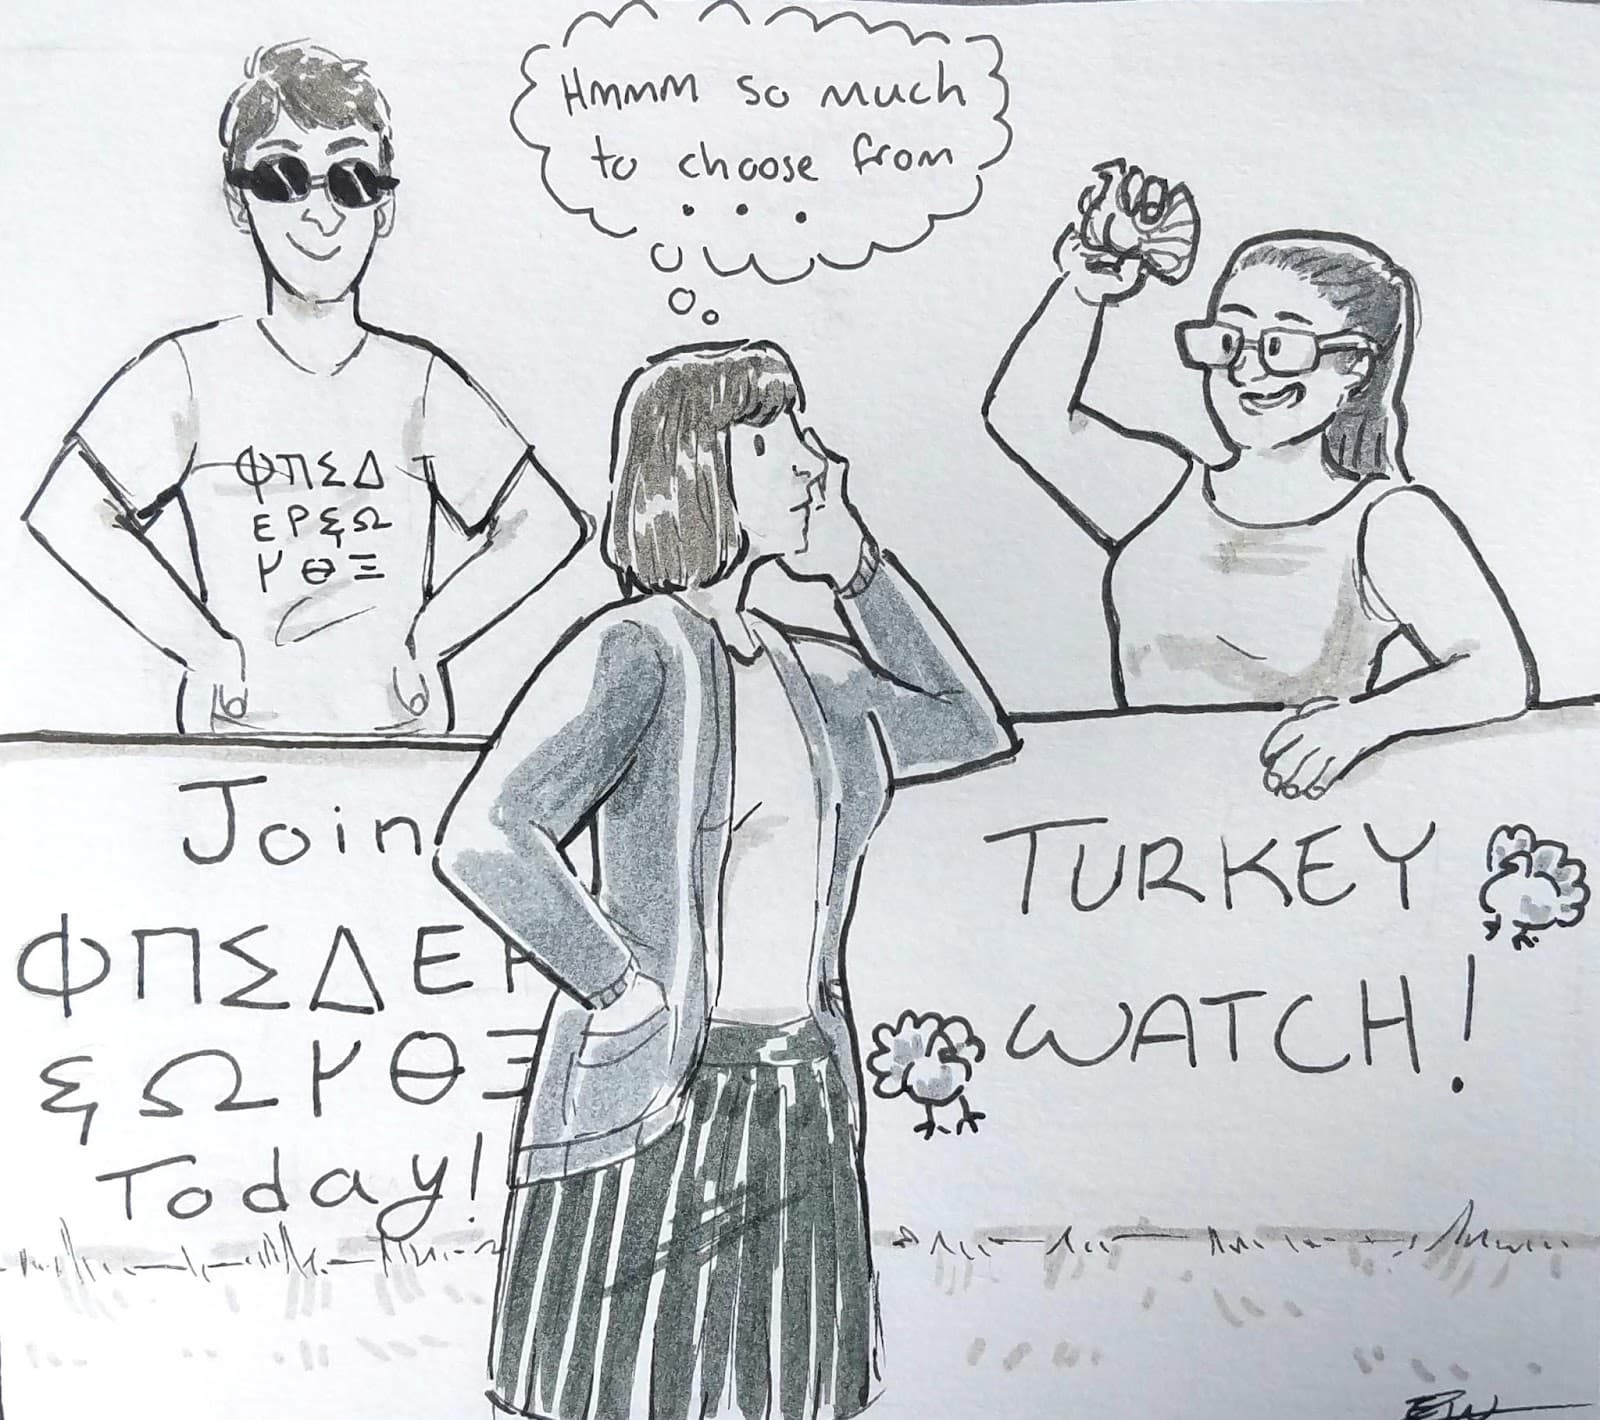 Hmmm so much
to choose from
...
ΦΠΣΔ
ΕΡξΩ
ΥΘΞ
Join
ΦΠΣΔΕ
ξΩΥΘΞ
Today!
TURKEY
WATCH!